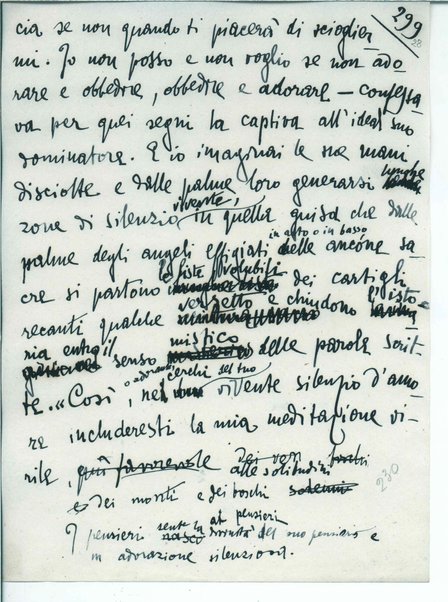 299
28
cia se non quando ti piacerà di scioglier
mi. Io non posso e non voglio se non ado
rare e obbedire, obbedire e adorare — confessa
va per quei segni la captiva all'ideal suo
dominatore. E io imaginai le sue mani
disciolte e dalle palme loro generarsi lunghe
zone di silenzio viventi, in quella guisa che dalle
palme degli angeli effigiati in alto o in basso nelle ancone sa
cre si partono le liste volubili dei cartigli
recanti qualche versetto e chiudono l'isto
ria entro il senso mistico delle parole scrit
te. «Così, o adorami, ne' cerchi del tuo vivente silenzio d'amo
re includeresti la mia meditazione vi
rile, più favorevole alle solitudini dei veri
dei monti e dei boschi solenni
230
ai pensieri
I pensieri sente la nasce divinità del suo pensiero e
in adorazione silenziosa.